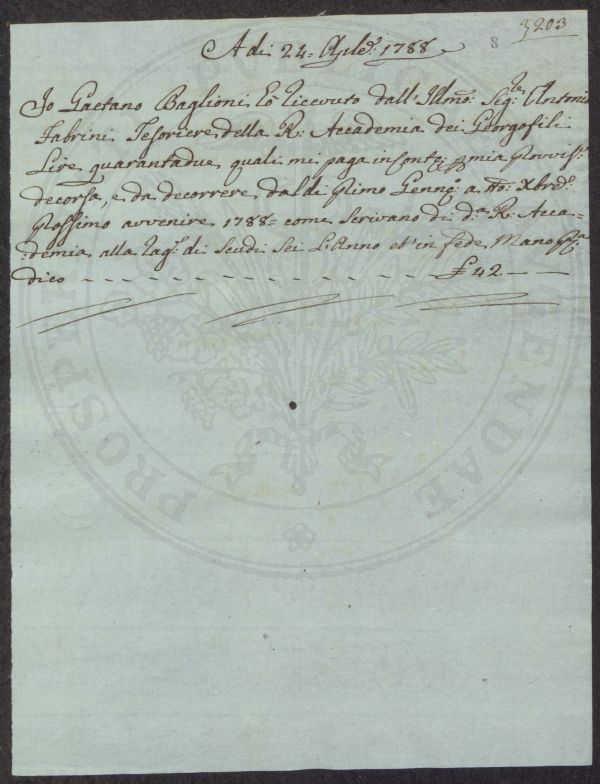 3203
8
A di 24. Aple. 1788.
Io Gaetano Baglioni hò ricevuto dall'Illmo: Sigre: Antonio
Fabrini Tesoriere della R: Accademia dei Georgofili
Lire quarantadue quali mi paga in Conto mia Provvis:
decorsa, e da decorrere dal dì Primo Genno: a tto: Xbre:
Prossimo avvenire 1788. come Scrivano di da: R: Acca=
:demia alla rage: di Scudi Sei L'Anno et in fede Mano Ppa:
dico - - - - - - - - - - - - £ 42 - -
PROSPERITATI PUBLICAE AUGENDAE